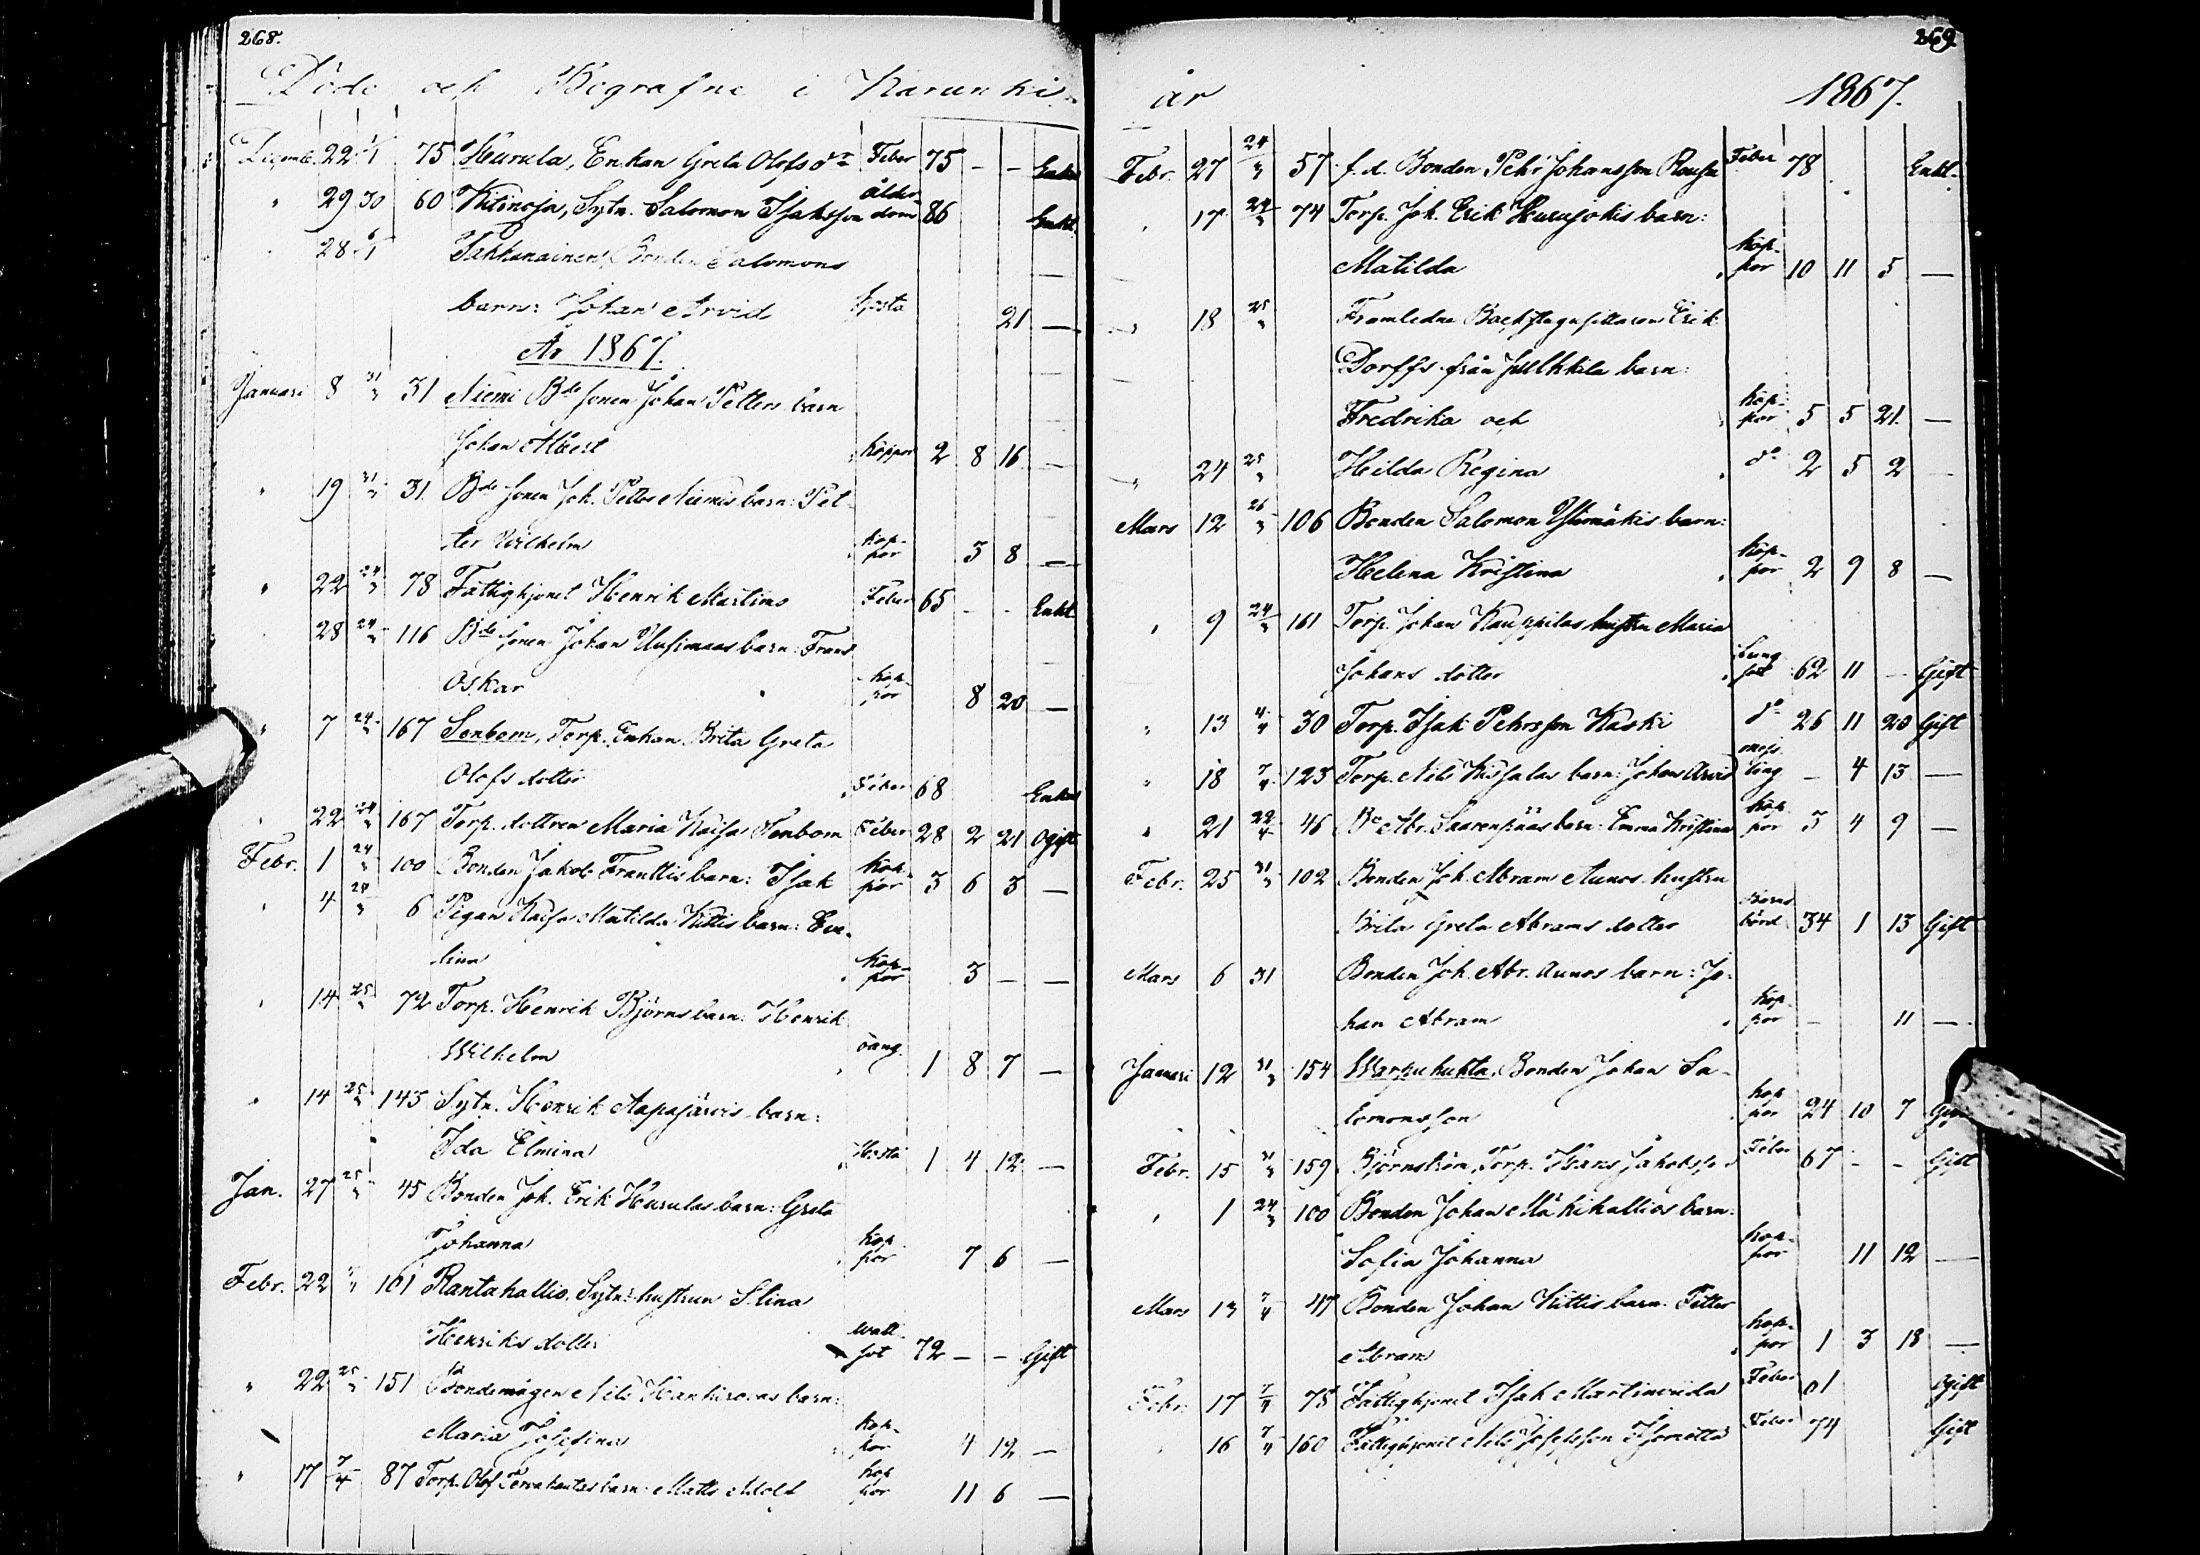 268.
Döde och Begrafne i Karunki
Decemb. 22 6/1 75 Hurula, Enkan Greta Olofsdr Feber 75 - - Enka
" 29 30 60 Kitinoja, Sytn. Salomon Isaksson ålderdom 86 Enkl.
28 6/1 Takkanainen, Bonden Salomons
barn: Johan Arvid hosta 21 —
År 1867.
Januari 8 31/3 31 Niemi Bde sonen Johan Petters barn
Johan Albert koppor 2 8 16 —
" 19 31/3 31 Bde sonen Joh. Petter Niemis barn: Pet-
ter Wilhelm koppor 3 8 —
" 22 24/3 78 Fattighjonet Henrik Martimo Feber 65 - - Enkl
28 24/3 116 Bde sonen Johan Uusimaas barn: Frans
Oskar koppor 8 20 —
" 7 24/3 167 Senbom, Torp. Enkan Brita Greta
Olofsdotter Feber 68 Enka
22 24/3 167 Torp. dottren Maria Kaisa Senbom Feber 28 2 21 Ogift
Febr. 1 24/3 100 Bonden Jakob Franttis barn: Isak koppor 3 6 3 —
" 4 24/3 6 Pigan Kaisa Matilda Kittis barn: Eve-
lina koppor 3 — —
" 14 25/3 72 Torp. Henrik Björns barn: Henrik
Wilhelm oang. 1 8 7 —
" 14 25/3 143 Sytn. Henrik Aapajärvis barn:
Ida Elmina Hosta 1 4 12 —
Jan. 27 25/3 45 Bonden Joh. Erik Hurulas barn: Greta
Johanna koppor 7 6 —
Febr. 22 161 Rantakallio, Sytn: hustrun Stina
Henriksdotter wattsot 72 — — Gift
" 22 25/3 151 Bondemågen Nils barn:
Maria Josefina koppor 4 12 —
" 17 7/4 87 Torp. Olof barn: Matts Adolf koppor 11 6 —
269
år 1867.
Febr. 27 24/3 57 f.d. Bonden Pehr Johansson Feber 78 Enkl.
" 17 24/3 74 Torp. Joh. Erik Hurujokis barn:
Matilda koppor 10 11 5 —
" 18 25/3 Framledne Backstugusittaren Erik
Dorffs från barn:
Fredrika och koppor 5 5 21 —
" 24 25/3 Hilda Regina do 2 5 2 —
Mars 12 26/3 106 Bonden Salomon Ylimäkis barn:
Helena Kristina koppor 2 9 8 —
" 9 24/3 161 Torp. Johan Kauppilas hustru Maria
Johansdotter Lungsot 62 11 — Gift
" 13 4/4 30 Torp. Isak Pehrsson Kaski do 26 11 20 Gift
" 18 7/4 123 Torp. Nils barn: Johan Arvid messling — 4 13 —
" 21 22/4 46 Be Abr. Saarenpääs barn: Emma Kristina koppor 3 4 9 —
Febr. 25 31/3 102 Bonden Joh. Abram Aunos hustru
Brita Greta Abramsdotter Barnsbörd 34 1 13 Gift
Mars 6 31 Bonden Joh. Abr. Aunos barn: Jo-
han Abram koppor — 11 —
Januari 12 31/3 154 Warpuhukta, Bonden Johan Sa-
lomonsson koppor 24 10 7 Gift
Febr. 15 31/3 159 Björnström, Torp. Hans Jakobsson Feber 67 - - Gift
" 1 24/3 100 Bonden Johan Mäkikallios barn:
Sofia Johanna koppor 11 12 —
Mars 13 7/4 47 Bonden Johan Kittis barn: Petter
Abram koppor 1 3 18 —
Febr. 17 7/4 75 Fattighjonet Isak Feber 61 Ogift
" 16 7/4 160 Fattighjonet Nils Josefsson Feber 74 Gift